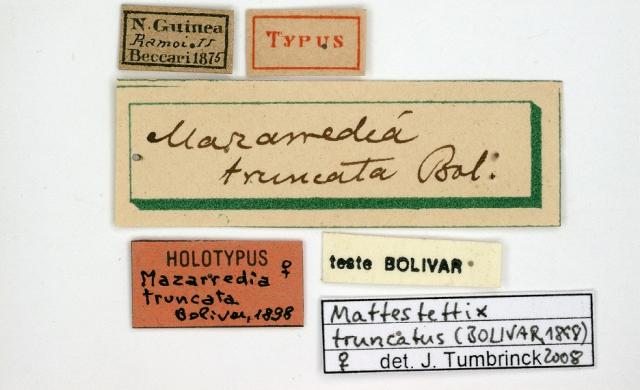 N. Guinea
Ramoi. II
Beccari 1875
TYPUS
Mazarredia
truncata Bol.
HOLOTYPUS
Mazarredia ♀
truncata
Bolivar, 1898
teste BOLIVAR
Mattestettix
truncatus (BOLIVAR, 1898)
♀ det. J. Tumbrinck 2008